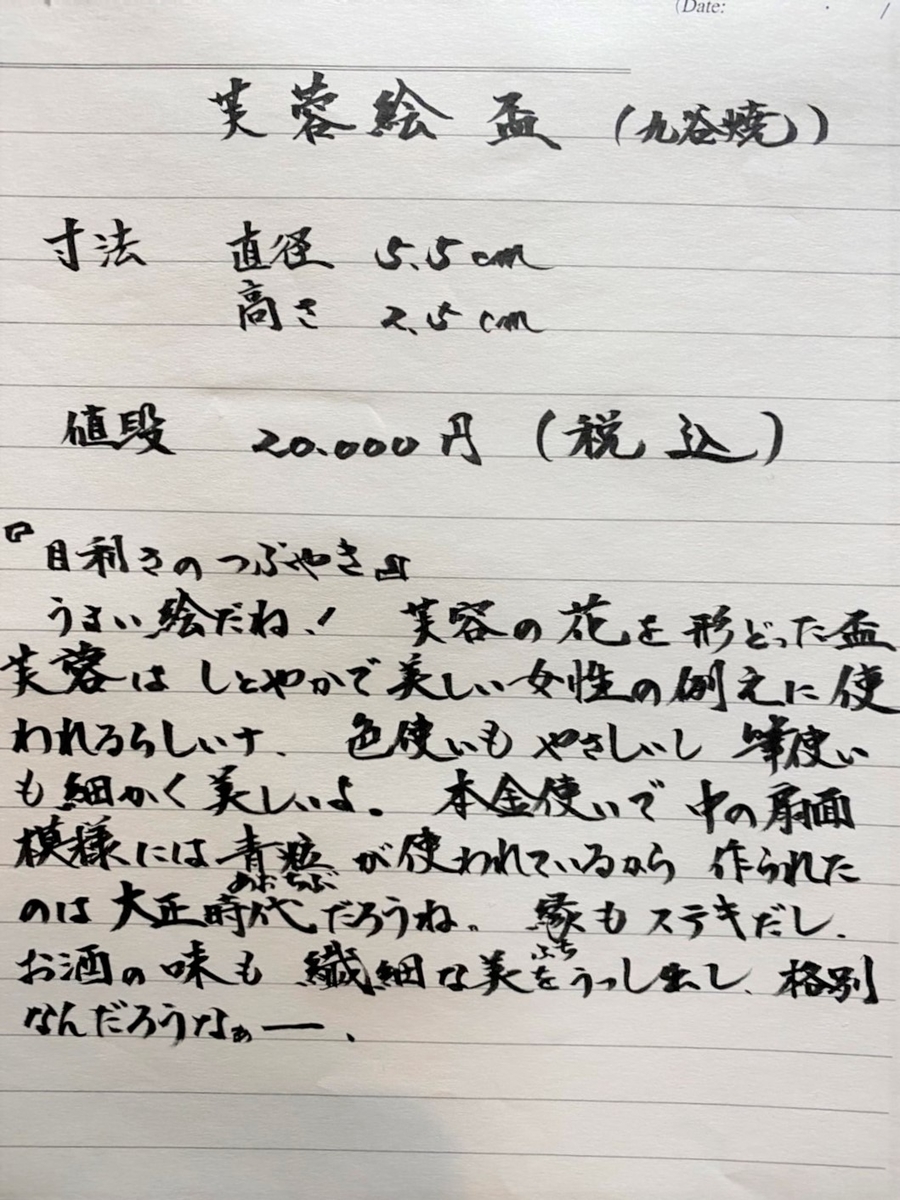 (Date: ・ /
芙蓉絵 盃 (九谷焼)
寸法 直径 5.5cm
高さ 2.5cm
値段 20.000円 (税込)
『目利きのつぶやき』
うまい絵だね! 芙蓉の花を形どった盃
芙蓉は しとやかで美しい女性の例えに使
われるらしいナ、 色使いも やさしいし 筆使い
も細かく美しいよ。 本金使いで 中の扇面
模様には青粒が使われているから 作られた
あおちぶ
のは大正時代だろうね。 縁もステキだし、
ふち
お酒の味も 繊細な美をうつし出し、格別
なんだろうなぁー、